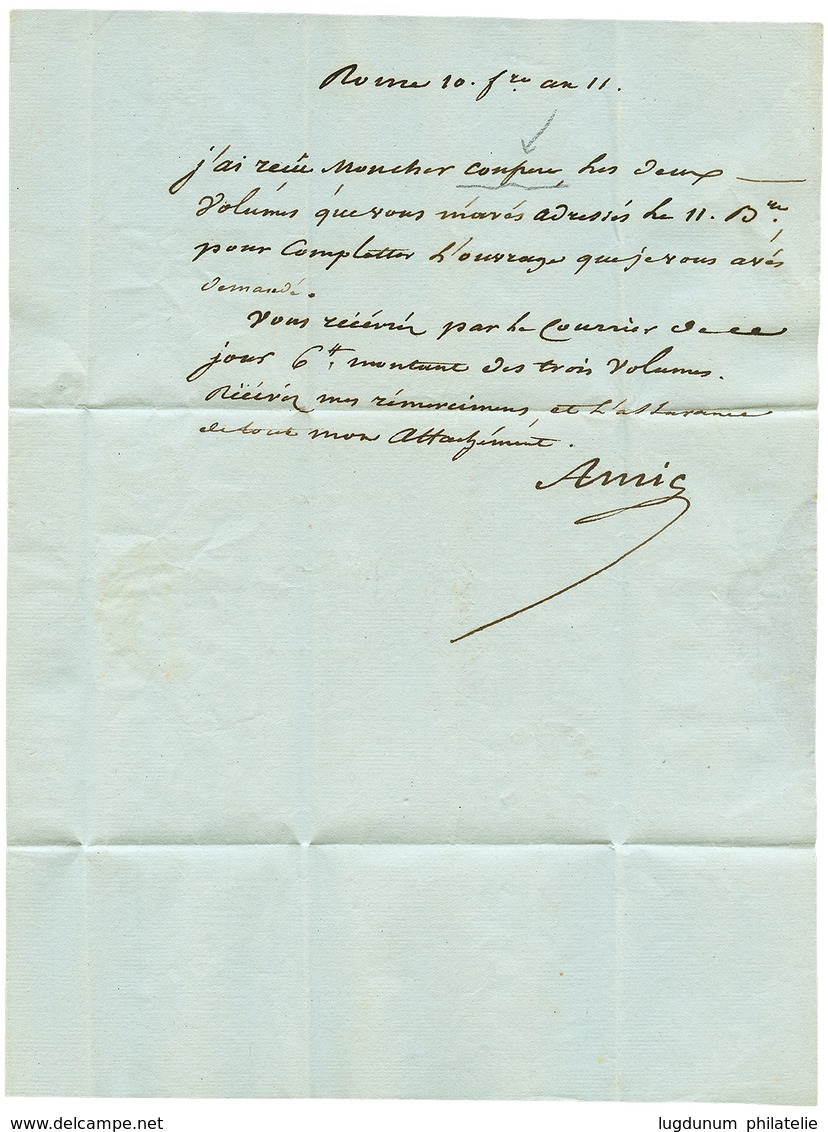 Rome 10. fre an 11.
j'ai recu Moncher confrere les deux
Volumes que vous m'avés adressés le 11. Bre,
pour Completter L'ouvrage que je vous avés
demandé.
Vous récévréz par le Courrier de ce
jour 6tt, montant des trois Volumes.
Récévéz mes rémercimens, et L'assurance
de tout mon Attachément.
Amic
www.delcampe.net
lugdunum philatelie